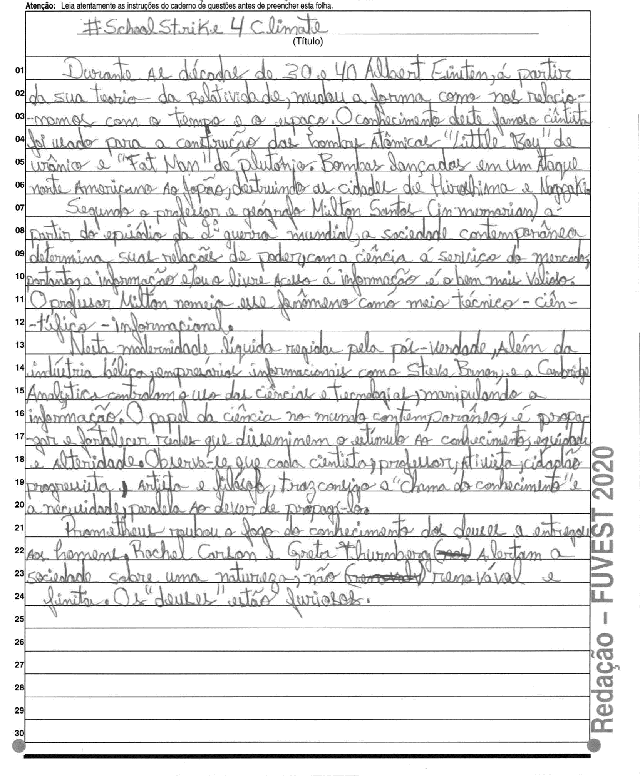 Atenção: Leia atentamente as instruções do caderno de questões antes de preencher esta folha.
#SchoolStrike 4 Climate
(Título)
01 Durante as décadas de 30 e 40 Albert Einten, á partir
02 da sua teoria da Relatividade, mudou a forma como nos relacio-
03 -namos com o tempo e o espaço. O conhecimento deste famoso cientista
04 foi usado para a construção das bombas Atômicas "Little Boy" de
05 urânio e "Fat Man" de plutônio. Bombas lançadas em um Ataque
06 norte Americano Ao Japão, destruindo as cidades de Hiroshima e Nagazaki.
07 Segundo o professor e geógrafo Milton Santos (in memorian) a
08 partir do episódio da 2ª guerra mundial, a sociedade contemporânea
09 determina suas relações de poder, com a ciência á serviço do mercado,
10 portanto, a informação e/ou o livre Acesso á informação é o bem mais Valioso.
11 O professor Milton nomeia esse fenômeno como meio técnico - cien-
12 -tífico - informacional.
13 Nesta modernidade líquida regida pela pós-Verdade, Além da
14 indústria bélica, empresários informacionais como Steve Banon, e a Cambridge
15 Analytics controlam o uso das ciências e tecnologias, manipulando a
16 informação. O papel da ciência no mundo contemporâneo, é propa-
17 gar e fortalecer redes que disseminem o estímulo Ao conhecimento, equidade
18 e Alteridade. Observa-se que cada cientista, professor, Ativista, cidadão
19 progressista, Artista e filósofo, traz consigo a "chama do conhecimento" e
20 a necessidade, paralela Ao dever de propagá-lo.
21 Prometheus roubou o fogo do conhecimento dos deuses e entregou
22 Aos homens. Rachel Carson e Greta Thurnberg Alertam a
23 sociedade sobre uma natureza, não renovável e
24 finita. Os "deuses" estão furiosos.
25
26
27
28
29
30
Redação – FUVEST 2020